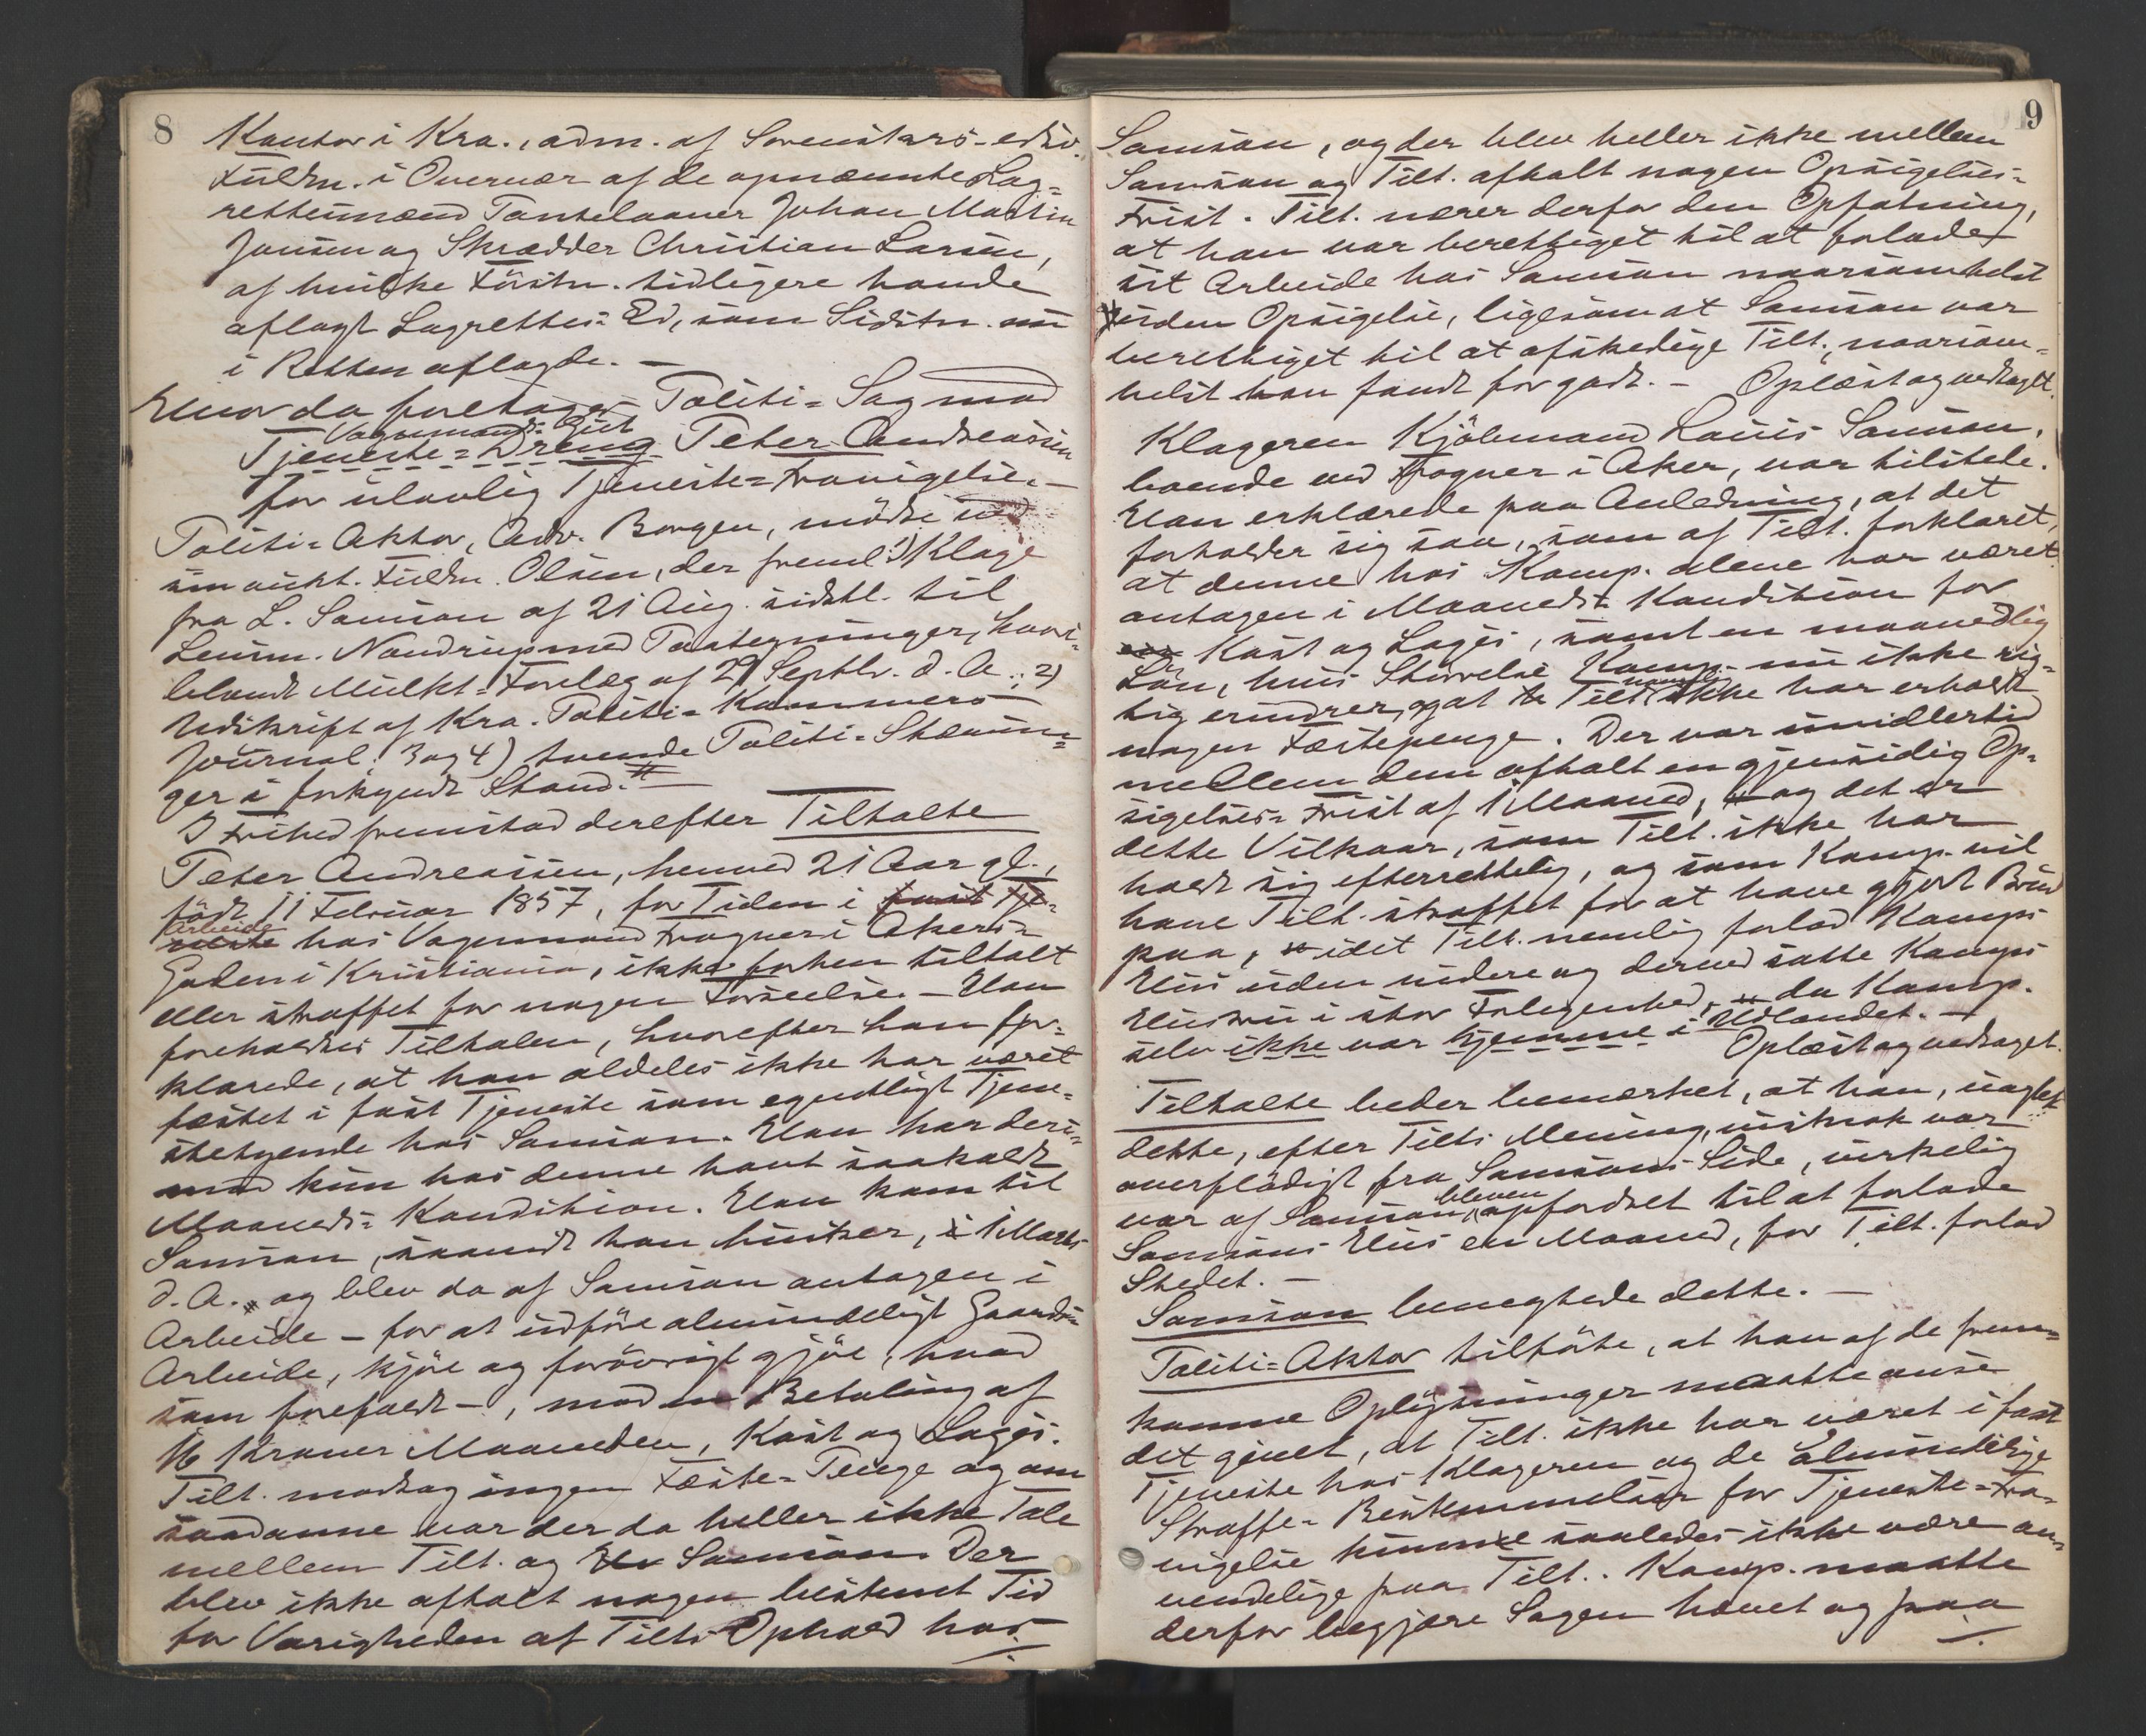 8
Kontor i Kra., adm. af Sorenskrs. edsv.
Fuldm. i Overvær af de opnævnte Lag-
rettemænd Pantelaaner Johan Martin
Jensen og Skrædder Christian Larsen,
af hvilke Førstn. tidligere havde
aflagt Lagrettes-Ed, som Sidstn. nu
i Retten aflagde. —
Hvor da foretoges Politi-Sag mod
Vognmands-Gut
Tjeneste-Dreng Peter Andreassen
for ulovlig Tjeneste-Fravigelse. —
Politi-Aktor, Adv. Borgen, mødte ved
sin autht. Fuldm. Olsen, der freml. 1) Klage
fra L. Samson af 21 Aug. sidstl. til
Lensm. Nandrup med Paategninger, hvori-
blandt Mulkt-Forelæg af 29 Septbr. d. A.; 2)
Udskrift af Kra. Politi-Kammers
Journal; 3 og 4) tvende Politi-Stævnin-
ger i forkyndt Stand. —
I Frihed fremstod derefter Tiltalte
Peter Andreassen, henved 21 Aar gl.,
født 11 Februar 1857, for Tiden i fast Tje-
Arbeide
neste hos Vognmand Frogner i Akers-
Gaden i Kristiania, ikke forhen tiltalt
eller straffet for nogen Forseelse. — Han
foreholdtes Tiltalen, hvorefter han for-
klarede, at han aldeles ikke har været
fæstet i fast Tjeneste som egentligt Tjene-
stetyende hos Samson. Han har deri-
mod kun hos denne havt saakaldt
Maaneds-Kondition. Han kom til
Samson, saavidt han husker, i 1 Marts
d. A. og blev da af Samson antagen i
Arbeide — for at udføre almindeligt Gaards-
Arbeide, kjøre og forøvrigt gjøre, hvad
som forefaldt —, mod en Betaling af
16 Kroner Maaneden, Kost og Logis.
Tilt. modtog ingen Fæste-Penge og om
saadanne var der da heller ikke Tale
mellem Tilt. og Hr Samson. Der
blev ikke aftalt nogen bestemt Tid
for Varigheden af Tilts Ophold hos
9
Samson, og der blev heller ikke mellem
Samson og Tilt. aftalt nogen Opsigelses-
Frist. Tilt. nærer derfor den Opfatning,
at han var berettiget til at forlade
sit Arbeide hos Samson naarsomhelst
uden Opsigelse, ligesom at Samson var
berettiget til at afskedige Tilt., naarsom-
helst han fandt for godt. — Oplæst og vedtaget.
Klageren Kjøbmand Louis Samson,
boende ved Frogner i Aker, var tilstede.
Han erklærede paa Anledning, at det
forholder sig saa, som af Tilt. forklaret,
at denne hos Komp. alene har været
antagen i Maaneds-Kondition for
Kost og Logis, samt en maanedlig
Løn, hvis Størrelse Komp. nu ikke rig-
tig erindrer, og at Tilt. ikke har erholdt
nogen Fæstepenge. Der var imidlertid
mellem dem aftalt en gjensidig Op-
sigelses-Frist af 1 Maaned, og det er
dette Vilkaar, som Tilt. ikke har
holdt sig efterrettelig, og som Komp. vil
have Tilt. straffet for at have gjort Brud
paa, idet Tilt. nemlig forlod Komps
Hus uden videre og derved satte Komps
Hustru i stor Forlegenhed, da Komp.
selv ikke var hjemme i Udlandet. —
Oplæst og vedtaget.
Tiltalte beder bemærket, at han, uagtet
dette, efter Tilts Mening, vistnok var
overflødigt fra Samsons Side, virkelig
bleven
var af Samson opfordret til at forlade
Samsons Hus en Maaned, før Tilt. forlod
Stedet. —
Samson benegtede dette. —
Politi-Aktor tilførte, at han af de frem-
komne Oplysninger maatte anse
det givet, at Tilt. ikke har været i fast
Tjeneste hos Klageren og de almindelige
Straffe-Bestemmelser for Tjeneste-Fra-
vigelse kunne saaledes ikke være an-
vendelige paa Tilt.. Komp. maatte
derfor begjære Sagen hævet og paa